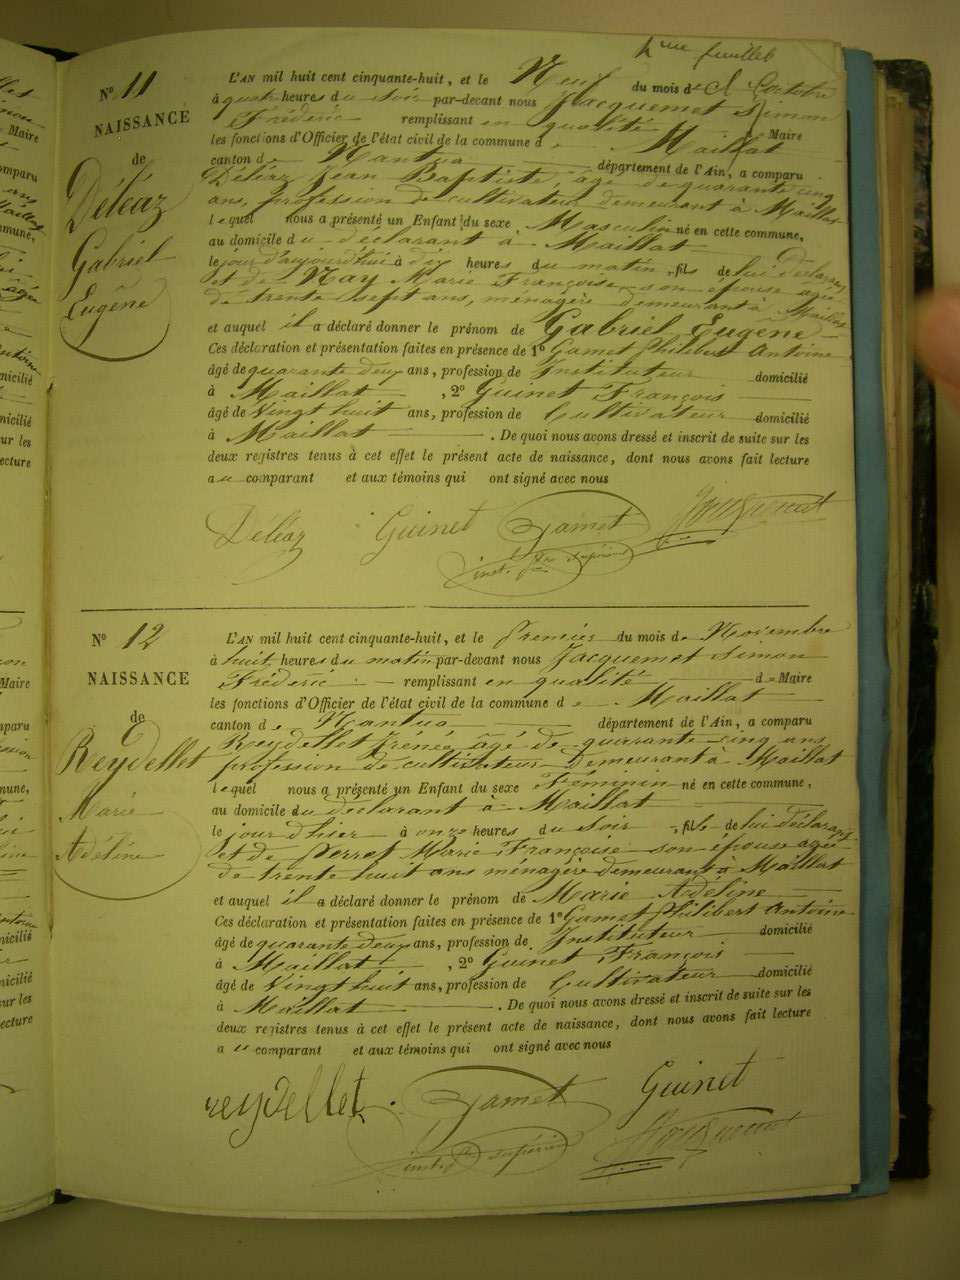 4me feuillet
N° 11
NAISSANCE
de
Déléaz
Gabriel
Eugène
L'AN mil huit cent cinquante-huit, et le Neuf du mois d'Octobre
à quatre heures du soir par-devant nous Jacquemet Simon
Fréderic remplissant en qualité de Maire
les fonctions d'Officier de l'état civil de la commune de Maillat
canton de Nantua département de l'Ain, a comparu
Déléaz Jean Baptiste, âgé de quarante cinq
ans, profession de cultivateur demeurant à Maillat
lequel nous a présenté un Enfant du sexe Masculin né en cette commune,
au domicile du déclarant à Maillat
le jour d'aujourd'hui à dix heures du matin, fils de lui Déclarant
et de Nay Marie Françoise, son épouse agée
de trente sept ans, ménagère demeurant à Maillat
et auquel il a déclaré donner le prénom de Gabriel Eugène
Ces déclaration et présentation faites en présence de 1° Gamet Philibert Antoine
âgé de quarante deux ans, profession de Instituteur domicilié
à Maillat, 2° Guinet François
âgé de Vingt huit ans, profession de Cultivateur domicilié
à Maillat. De quoi nous avons dressé et inscrit de suite sur les
deux registres tenus à cet effet le présent acte de naissance, dont nous avons fait lecture
au comparant et aux témoins qui ont signé avec nous
Deléaz Guinet Gamet Jacquemet
inst. supérieur
N° 12
NAISSANCE
de
Reydellet
Marie
Adéline
L'AN mil huit cent cinquante-huit, et le Premier du mois de Novembre
à huit heures du matin par-devant nous Jacquemet Simon
Fréderic remplissant en qualité de Maire
les fonctions d'Officier de l'état civil de la commune de Maillat
canton de Nantua département de l'Ain, a comparu
Reydellet Irénée âgé de quarante-cinq ans
profession de cultivateur Demeurant à Maillat
lequel nous a présenté un Enfant du sexe Féminin né en cette commune,
au domicile du déclarant à Maillat
le jour d'hier à onze heures du soir, fille de lui déclarant
et de Perret Marie Françoise son épouse agée
de trente huit ans ménagère demeurant à Maillat
et auquel il a déclaré donner le prénom de Marie Adéline
Ces déclaration et présentation faites en présence de 1° Gamet Philibert Antoine
âgé de quarante deux ans, profession de Instituteur domicilié
à Maillat, 2° Guinet François
âgé de Vingt huit ans, profession de Cultivateur domicilié
à Maillat. De quoi nous avons dressé et inscrit de suite sur les
deux registres tenus à cet effet le présent acte de naissance, dont nous avons fait lecture
au comparant et aux témoins qui ont signé avec nous
reydellet Gamet Guinet
inst. supérieur Jacquemet